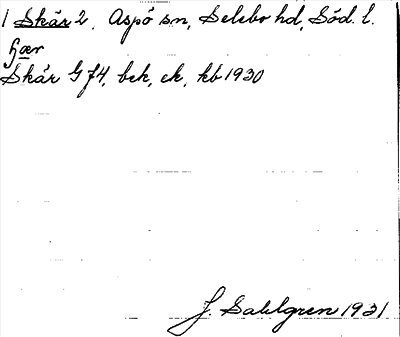 1 Skär 2. Aspö sn, Selebo hd, Söd. l.
Skär G f4, bek, ek, kb 1930
J. Sahlgren 1931